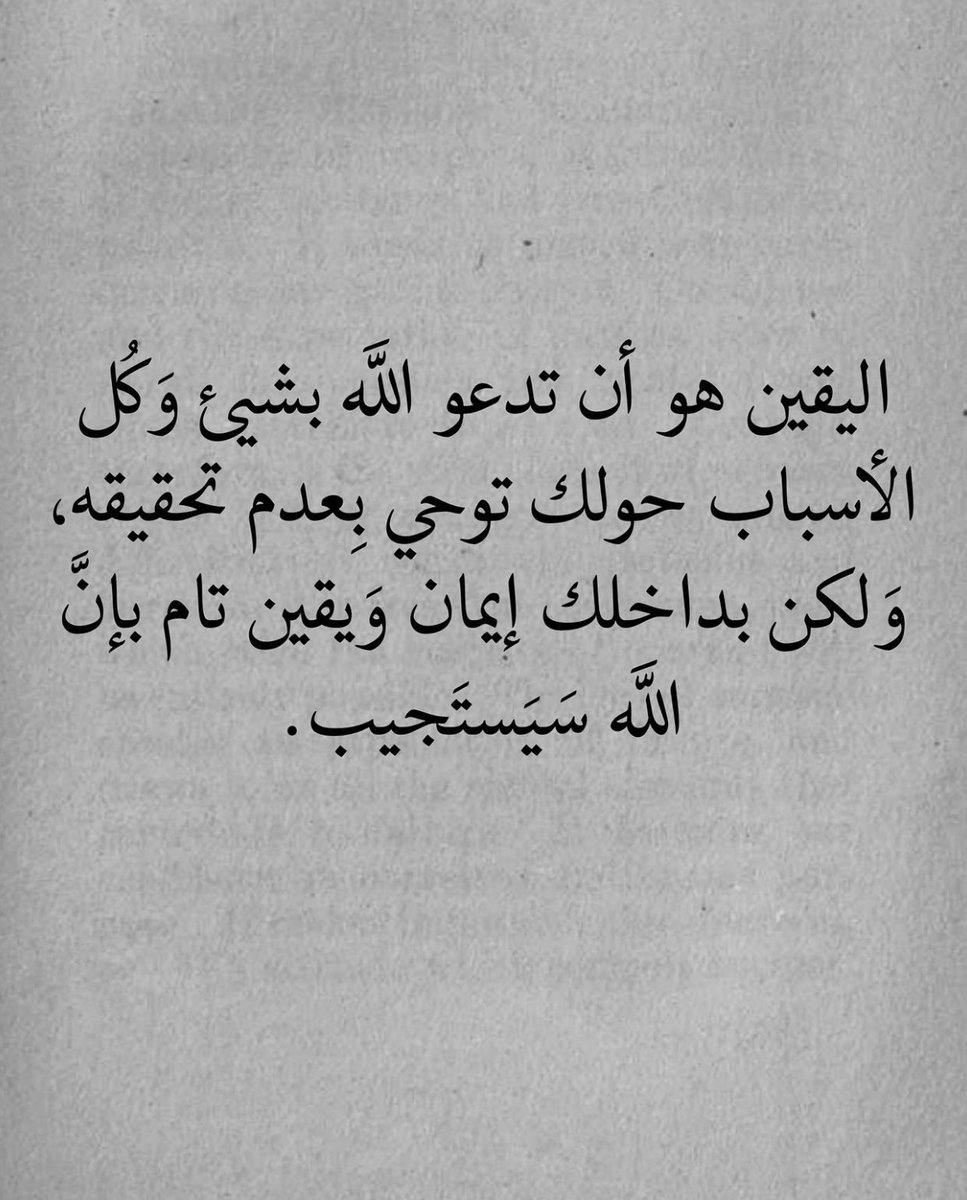 اليقين هو أن تدعو اللَّه بشيئ وَكُل
الأسباب حولك توحي بِعدم تحقيقه،
وَلكن بداخلك إيمان وَيقين تام بإنَّ
اللَّه سَيَستَجيب.